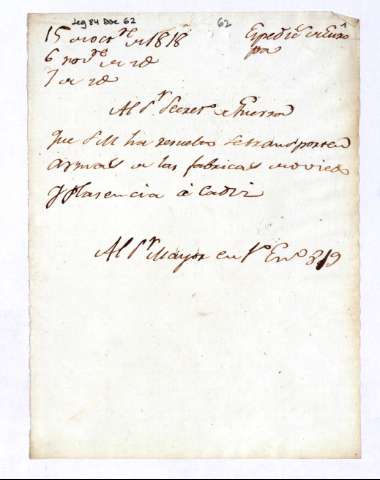 Leg 84 Doc 62
62
15 de oct.re de 1818
6 nov.re de id
7 de id
Exped.te de Euro
pa
Al S.r Secret.o de Guerra
Que S.M. ha resuelto se transporten
armas de las fabricas de oviedo
y Plasencia à Cadiz
Al S.r Mayor en 1.o En.o 819